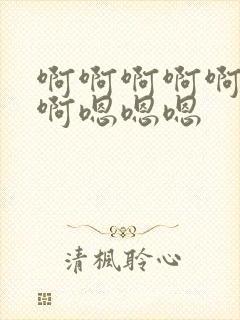 啊啊啊啊啊
啊嗯嗯嗯
清楓聆心